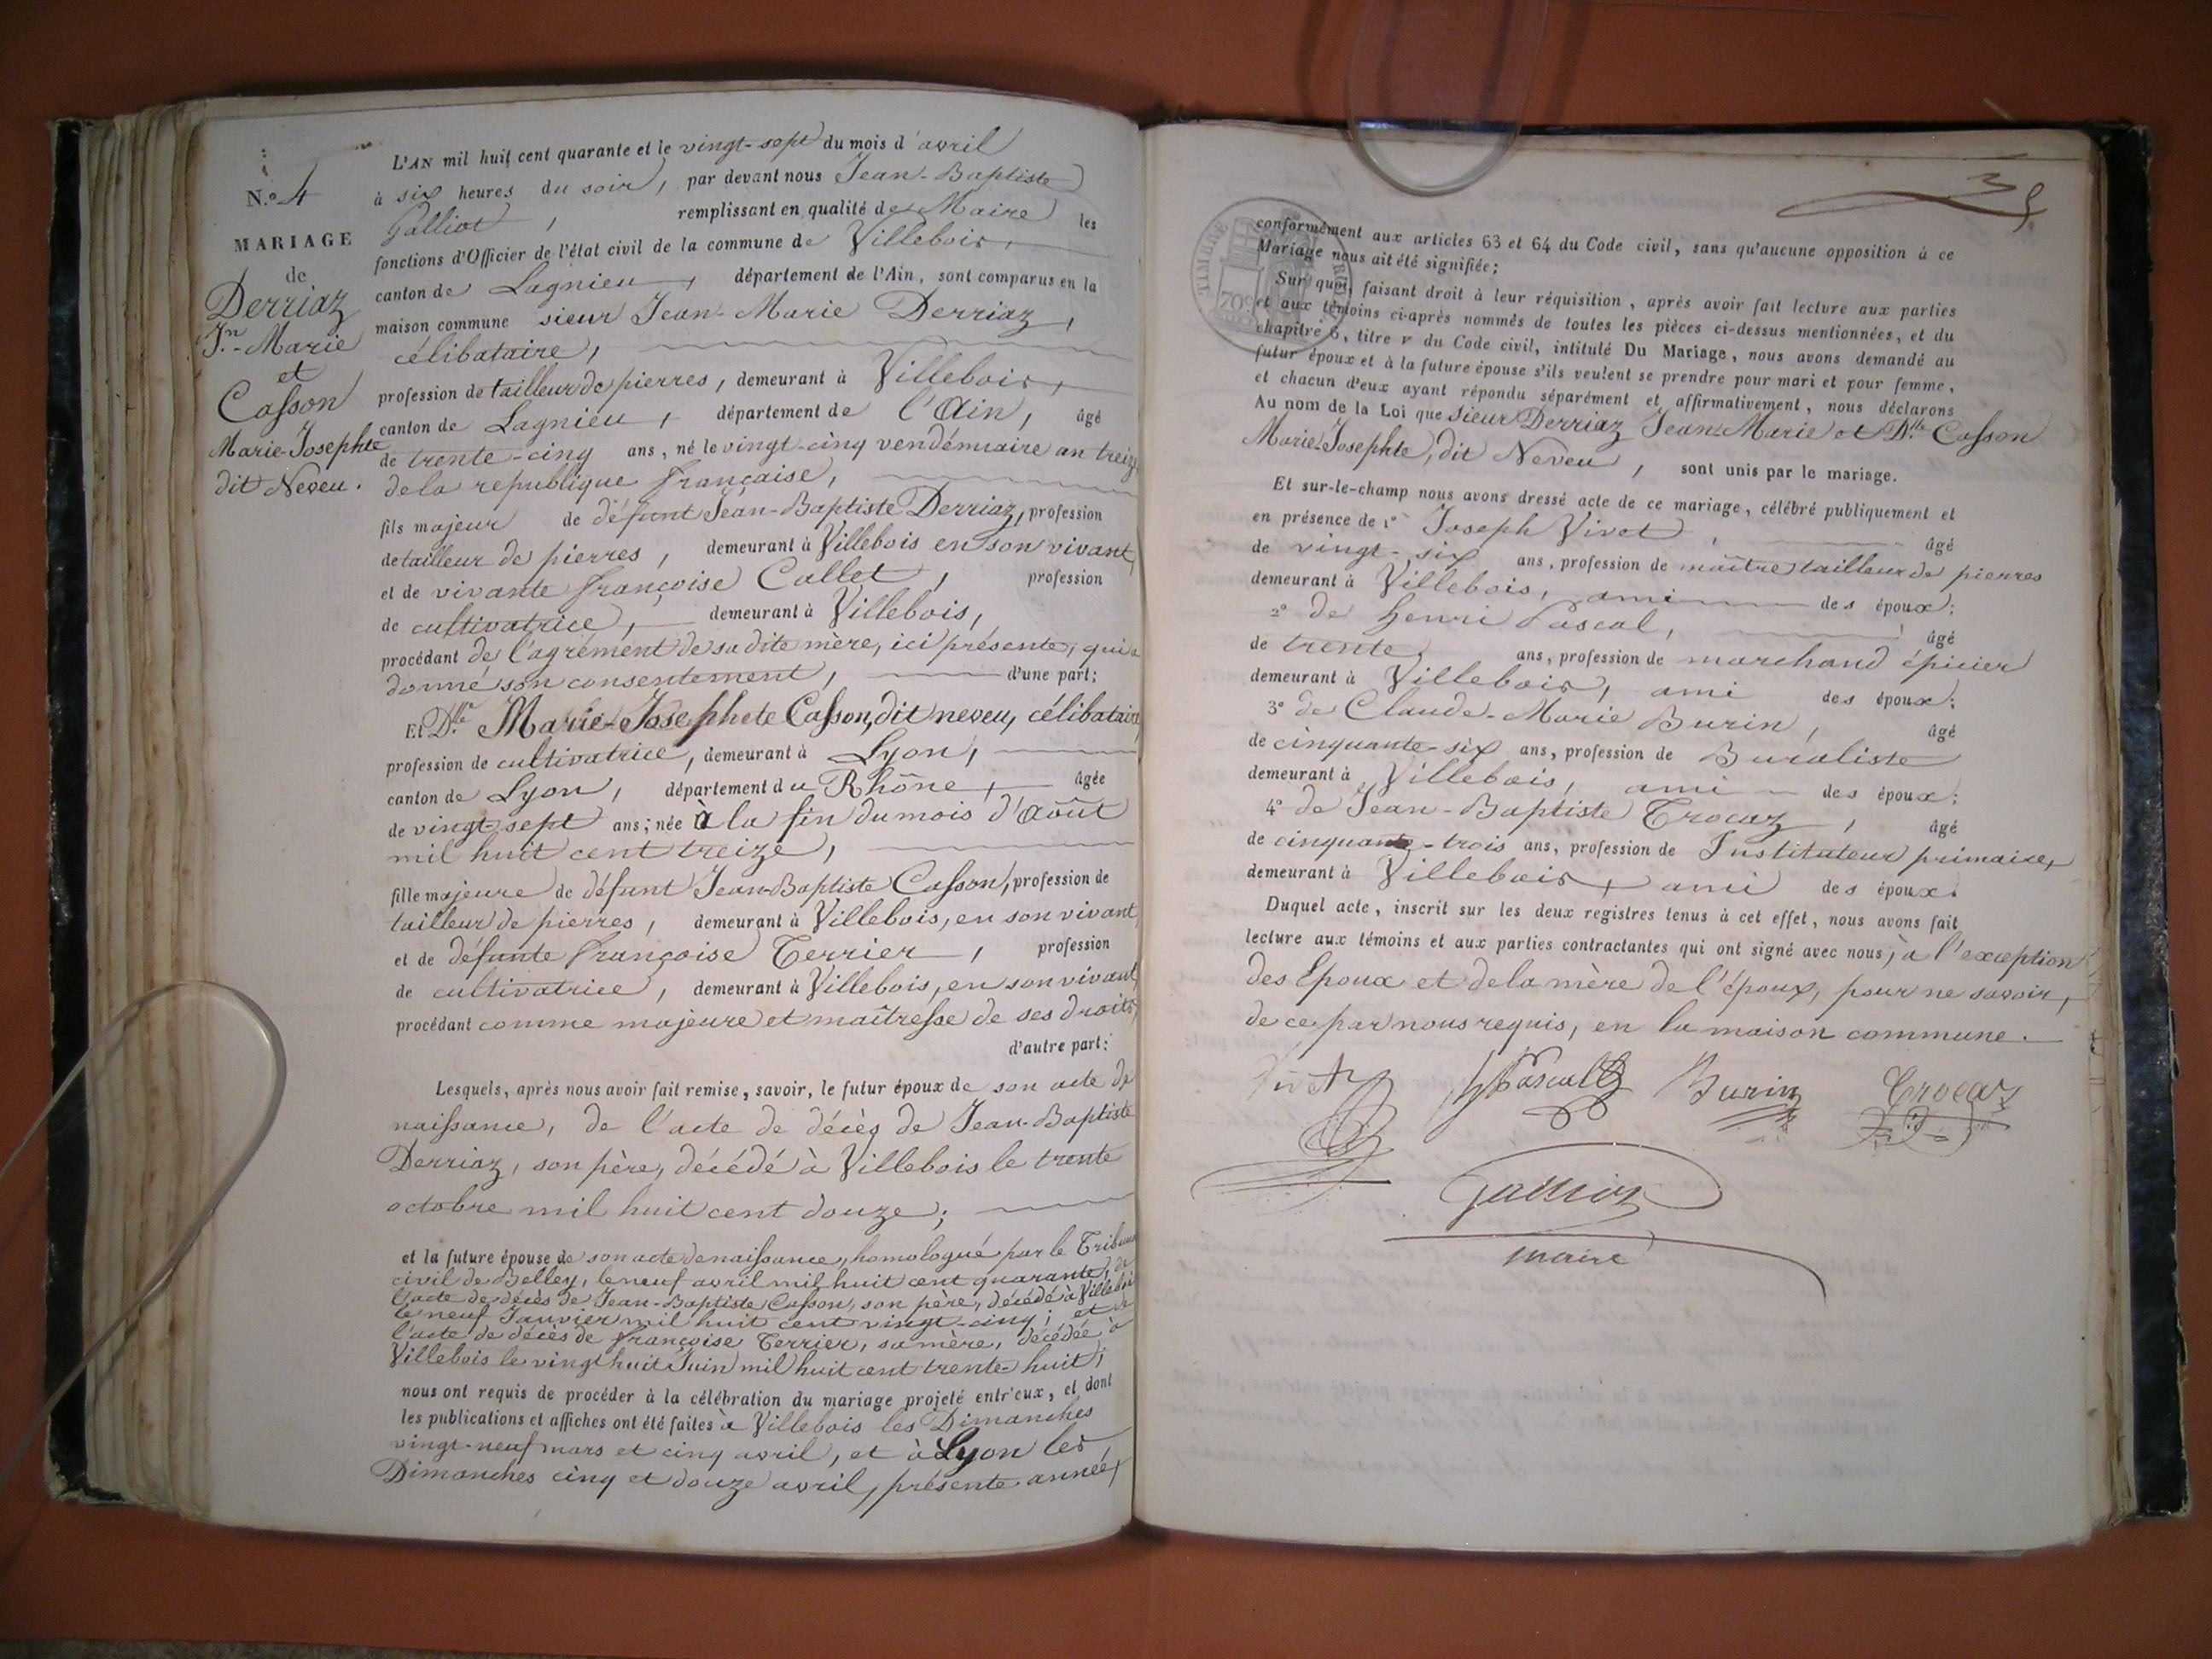 N.º 4
MARIAGE
de
Derriaz
Jn.- Marie
et
Casson
Marie-Josephte
dit Neveu.
L'AN mil huit cent quarante et le vingt-sept du mois d'avril
à six heures du soir, par devant nous Jean-Baptiste
Galliot, remplissant en qualité de Maire les
fonctions d'Officier de l'état civil de la commune de Villebois,
canton de Lagnieu, département de l'Ain, sont comparus en la
maison commune sieur Jean-Marie Derriaz,
célibataire,
profession de tailleur de pierres, demeurant à Villebois,
canton de Lagnieu, département de l'Ain, âgé
de trente-cinq ans, né le vingt-cinq vendémiaire an treize
de la republique française,
fils majeur de défunt Jean-Baptiste Derriaz, profession
de tailleur de pierres, demeurant à Villebois en son vivant,
et de vivante françoise Collet, profession
de cultivatrice, demeurant à Villebois,
procédant de l'agrément de sa dite mère, ici présente, qui a
donné son consentement, d'une part;
Et Dlle. Marie-Josephete Casson, dit neveu, célibataire,
profession de cultivatrice, demeurant à Lyon,
canton de Lyon, département du Rhône, âgée
de vingt-sept ans; née à la fin du mois d'Août
mil huit cent treize,
fille majeure de défunt Jean-Baptiste Casson, profession de
tailleur de pierres, demeurant à Villebois, en son vivant,
et de défunte françoise Terrier, profession
de cultivatrice, demeurant à Villebois, en son vivant,
procédant comme majeure et maîtresse de ses droits,
d'autre part;
Lesquels, après nous avoir fait remise, savoir, le futur époux de son acte de
naissance, de l'acte de décès de Jean-Baptiste
Derriaz, son père, décédé à Villebois le trente
octobre mil huit cent douze;
et la future épouse de son acte de naissance, homologué par le Tribunal
civil de Belley, le neuf avril mil huit cent quarante, de
l'acte de décès de Jean-Baptiste Casson, son père, décédé à Villebois
le neuf Janvier mil huit cent vingt-cinq; et de
l'acte de décès de françoise Terrier, sa mère, décédée à
Villebois le vingt huit Juin mil huit cent trente-huit;
nous ont requis de procéder à la célébration du mariage projeté entr'eux, et dont
les publications et affiches ont été faites à Villebois les Dimanches
vingt-neuf mars et cinq avril, et à Lyon les
Dimanches cinq et douze avril, présente année,
TIMBRE
70c
conformément aux articles 63 et 64 du Code civil, sans qu'aucune opposition à ce
Mariage nous ait été signifiée;
Sur quoi, faisant droit à leur réquisition, après avoir fait lecture aux parties
et aux témoins ci-après nommés de toutes les pièces ci-dessus mentionnées, et du
chapitre 6, titre v du Code civil, intitulé Du Mariage, nous avons demandé au
futur époux et à la future épouse s'ils veulent se prendre pour mari et pour femme,
et chacun d'eux ayant répondu séparément et affirmativement, nous déclarons
Au nom de la Loi que Sieur Derriaz Jean-Marie et Dlle. Casson
Marie-Josephte, dit Neveu, sont unis par le mariage.
Et sur-le-champ nous avons dressé acte de ce mariage, célébré publiquement et
en présence de 1º Joseph Vivet, âgé
de vingt-six ans, profession de maître tailleur de pierres
demeurant à Villebois, ami des époux;
2º de henri Pascal, âgé
de trente ans, profession de marchand épicier
demeurant à Villebois, ami des époux;
3º de Claude-Marie Burin, âgé
de cinquante-six ans, profession de Buraliste
demeurant à Villebois, ami des époux;
4º de Jean-Baptiste Trocaz, âgé
de cinquante-trois ans, profession de Instituteur primaire,
demeurant à Villebois, ami des époux.
Duquel acte, inscrit sur les deux registres tenus à cet effet, nous avons fait
lecture aux témoins et aux parties contractantes qui ont signé avec nous, à l'exception
des Epoux et de la mère de l'époux, pour ne savoir,
de ce par nous requis, en la maison commune.
Vivet hPascal Burin Trocaz
Galliot
maire